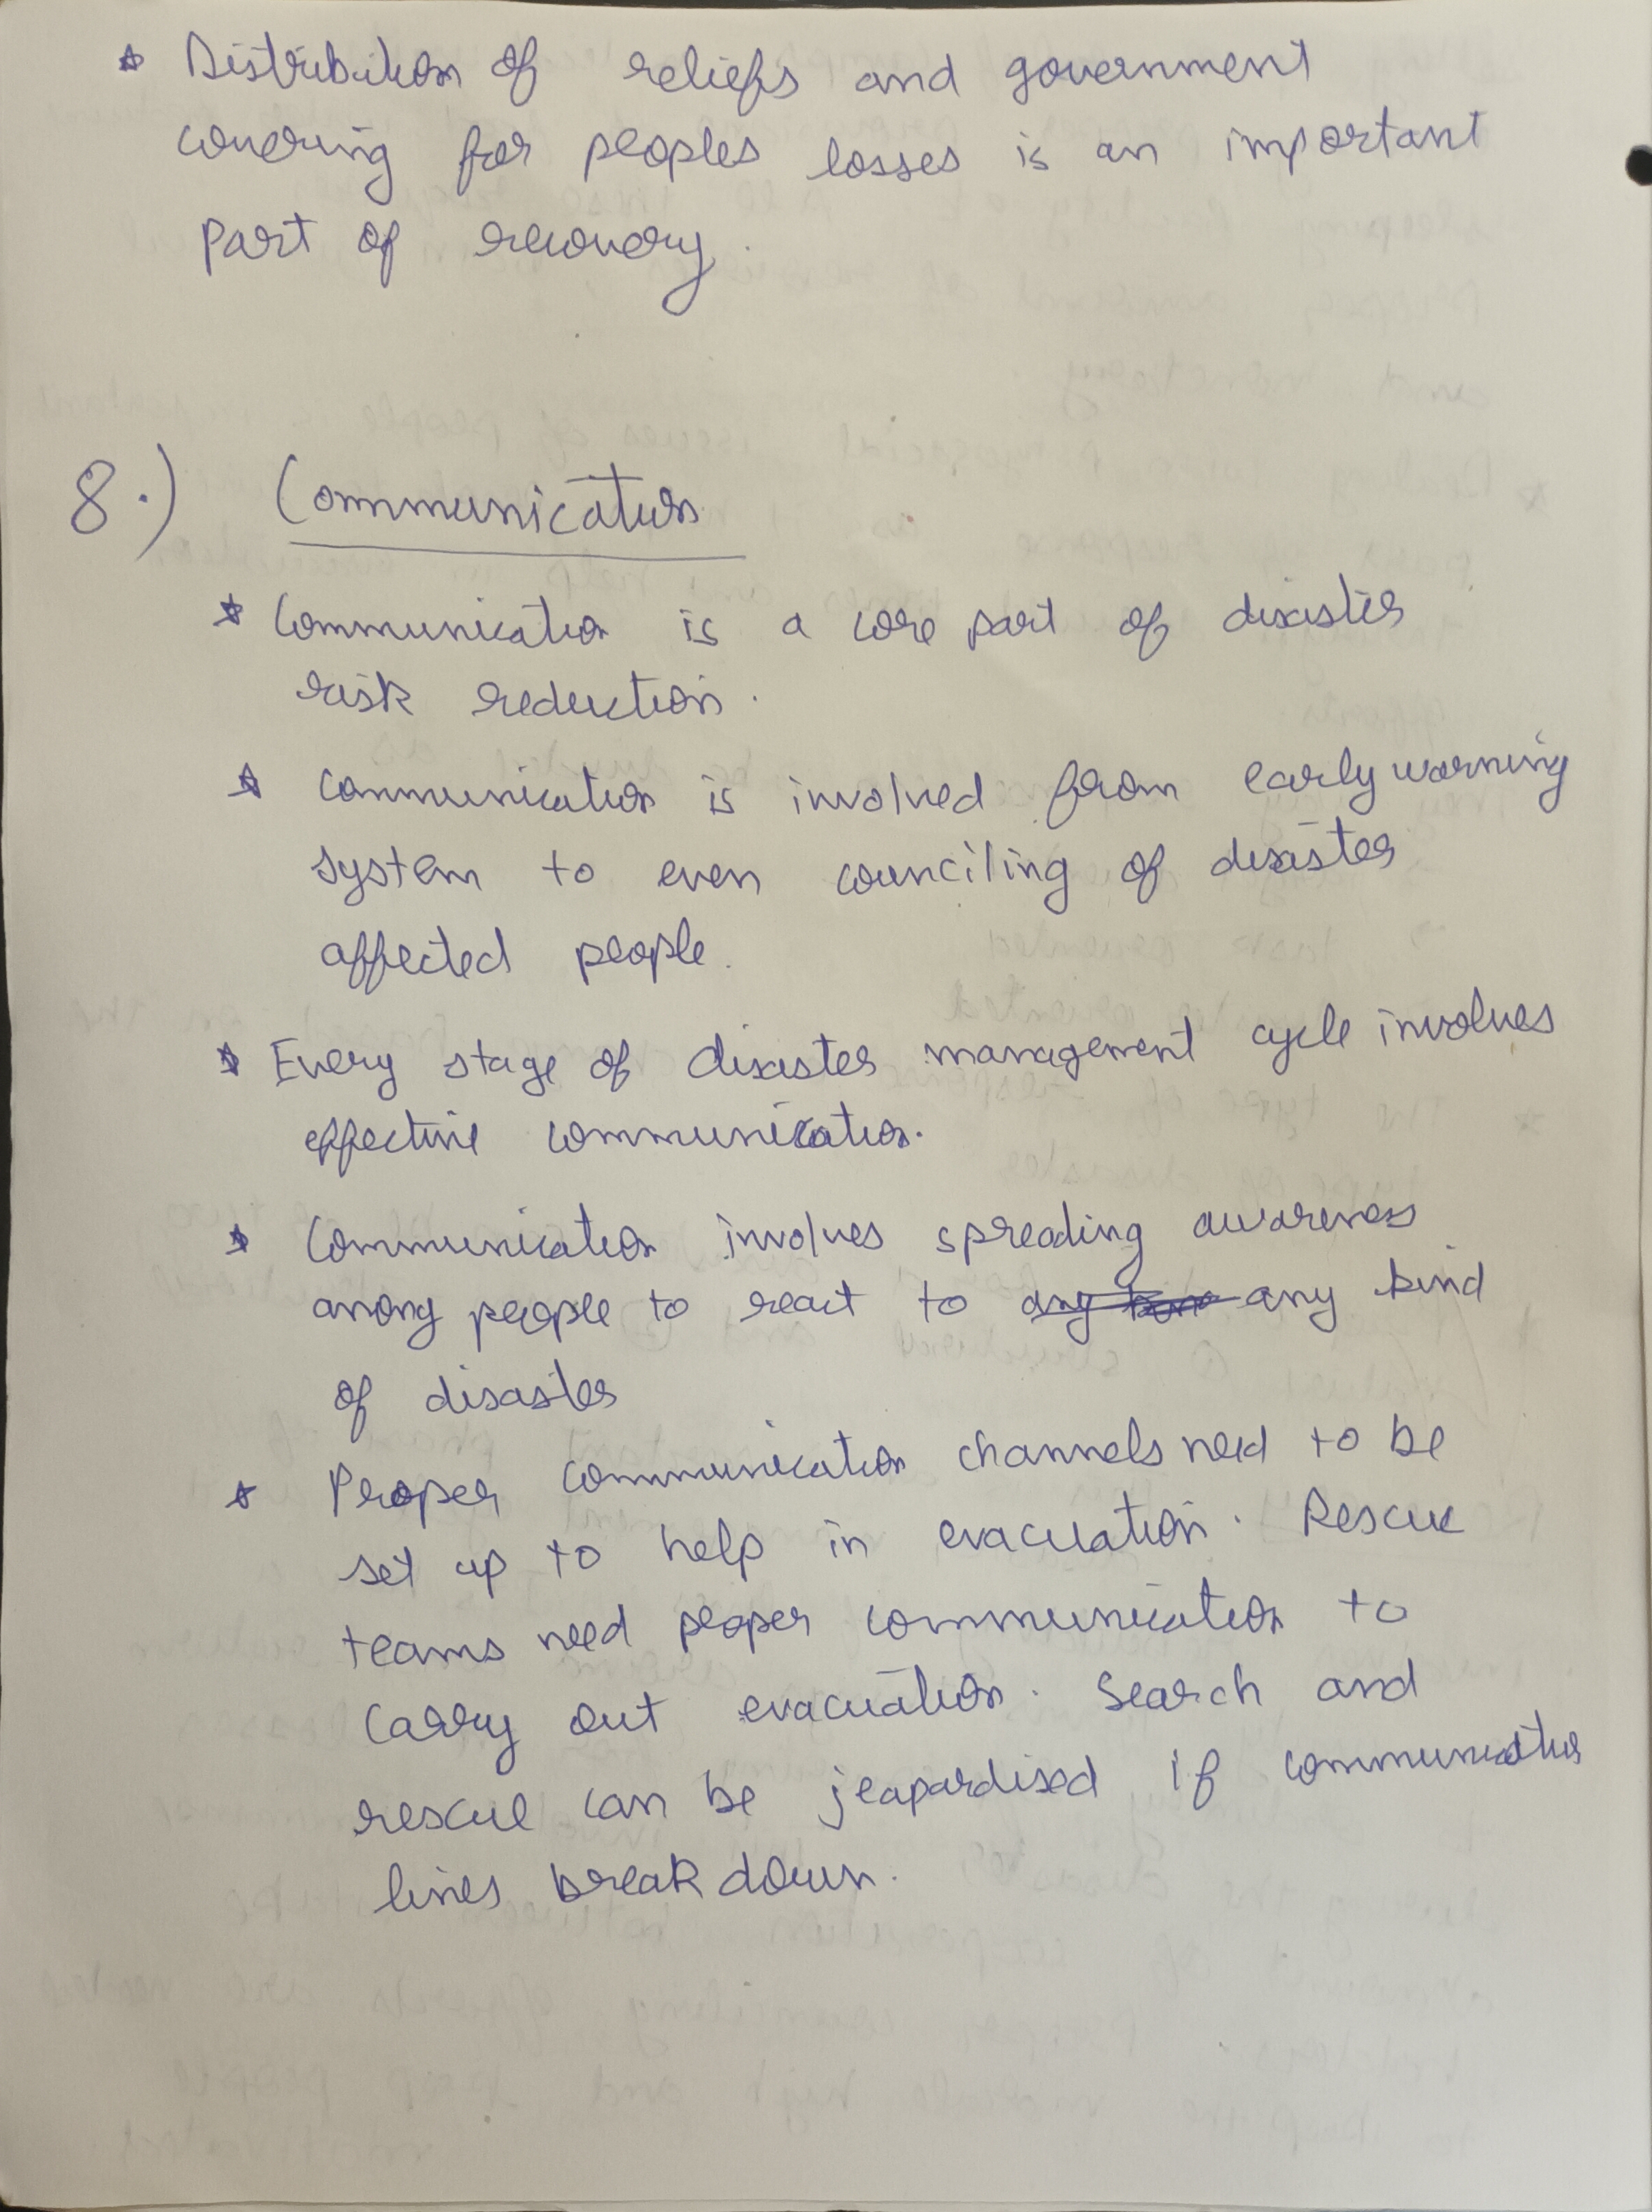 * Distribution of reliefs and government
covering for peoples losses is an important
part of recovery.
8.) Communication
* Communication is a core part of disaster
risk reduction.
* Communication is involved from early warning
system to even counciling of disaster
affected people.
* Every stage of disaster management cycle involves
effective communication.
* Communication involves spreading awareness
among people to react to any kind
of disaster
* Proper communication channels need to be
set up to help in evacuation. Rescue
teams need proper communication to
carry out evacuation. Search and
rescue can be jeapardised if communication
lines break down.